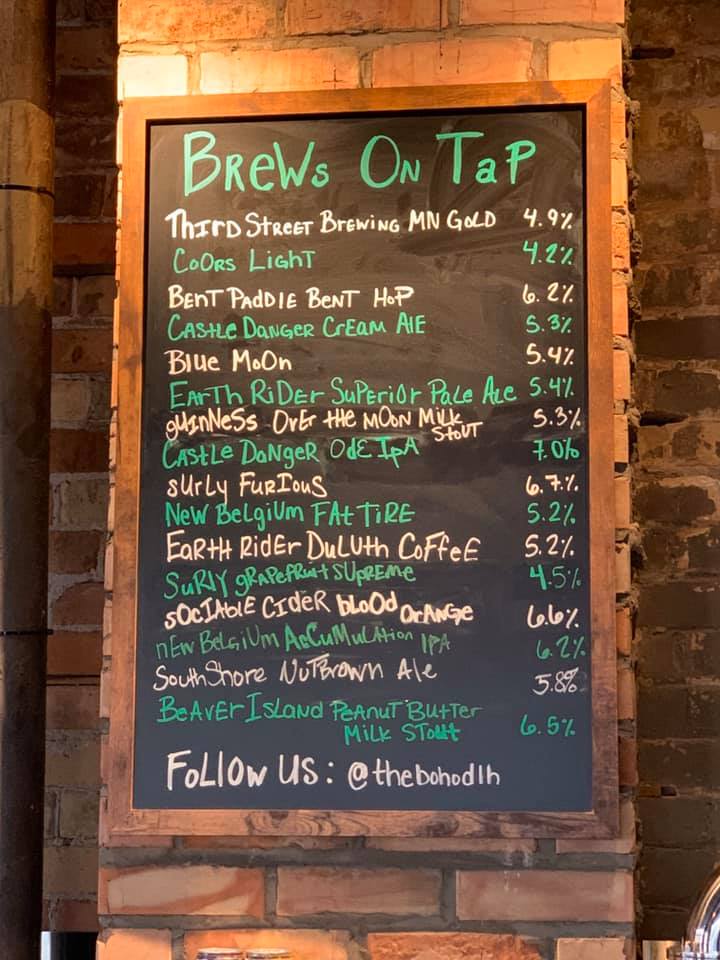 BReWs ON TaP
THIRD STREET BREWING MN GOLD 4.9%
COORS LIGHT 4.2%
BENT PADDIE BENT HOP 6.2%
CASTLE DANGER CREAM AlE 5.3%
Blue MoOn 5.4%
EARTH RiDEr SuPeriOr PaLe ALe 5.4%
guINNeSs OvEr the MOON MiLK STOUT 5.3%
CASTLE DaNgeR OdE IpA 7.0%
sURLy FURIOUS 6.7%
New BeLgiUm FAt TiRE 5.2%
EaRtH RIDEr DuLUth CoFFeE 5.2%
SuRLY gRAPefRuit SUpREme 4.5%
sOcIAbLE CIDER blOOd OrANge 6.6%
nEw BeLgiUm AcCuMuLAtion IPA 6.2%
SouthShore NUTBrown Ale 5.8%
BeAVEr ISLAND PeANuT BuTTer MiLK STOut 6.5%
FoLLOW US: @thebohodlh